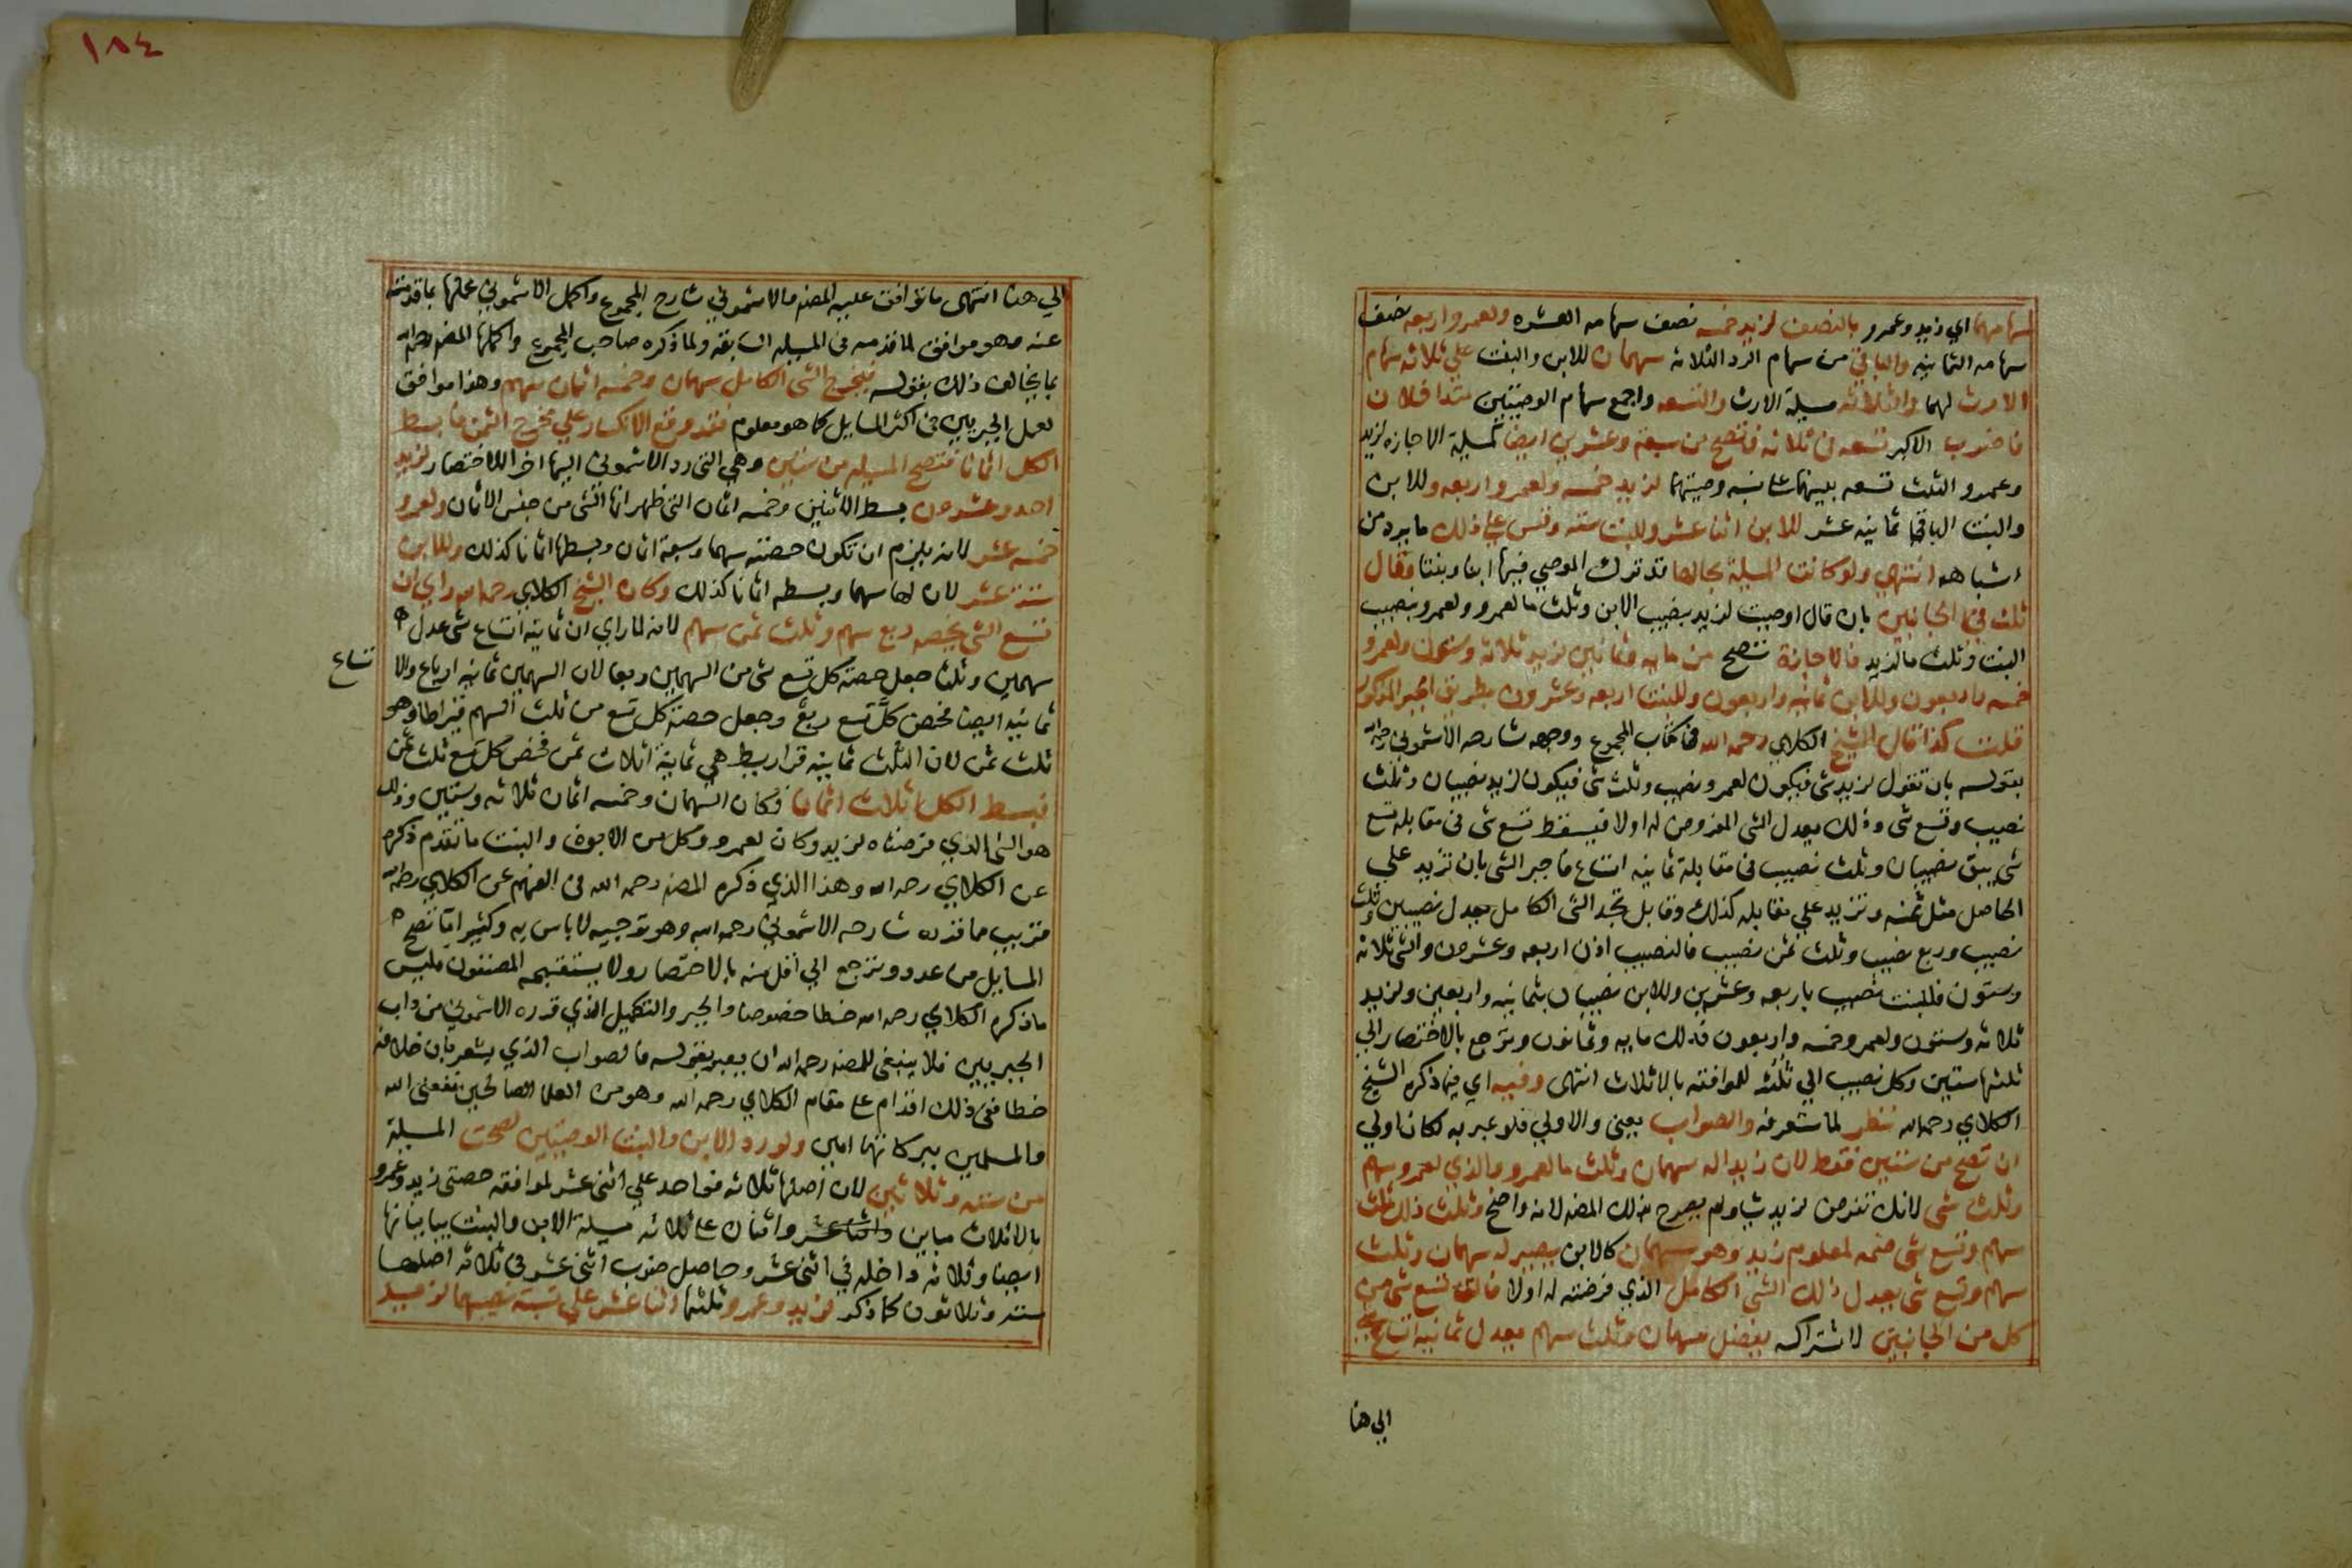 سهامهما اي زيد وعمرو بالنصف لزيد خمسه نصف سهامه العشره ولعمرو اربعه نصف
سهامه الثمانيه والباقي من سهام الرد الثلاثه سهمان للابن والبنت علي ثلاثه سهام
الارث لهما والثلاثه مسيلة الارث والتسعه واجمع سهام الوصيتين متداخلان
فاضرب الاكبر تسعه في ثلاثه فتصح من سبعة وعشرين ايضا كمسيلة الاجازه لزيد
وعمرو الثلث تسعه بينهما على نسبه وصيتهما لزيد خمسه ولعمرو اربعه وللابن
والبنت الباقي ثمانيه عشر للابن اثنا عشر وللبنت سته وقس علي ذلك ما يرد من
اشباهه انتهي ولو كانت المسيلة بحالها قد ترك الموصي فيها ابنا وبنتا وقال
ثلث في الجانبين بان قال اوصيت لزيد بنصيب الابن وثلث ما لعمرو ولعمرو بنصيب
البنت وثلث ما لزيد فالاجازة تصح من مايه وثمانين لزيد ثلاثة وستون ولعمرو
خمسه واربعون وللابن ثمانيه واربعون وللبنت اربعه وعشرون بطريق الجبر المذكور
قلت كذا قال الشيخ الكلاي رحمه الله في كتاب المجموع ووجهه شارحه الاشموني رحمه الله
بقوله بان تقول لزيد شي فيكون لعمرو نصيب وثلث شي فيكون لزيد نصيبان وثلث
نصيب وتسع شي وذلك يعدل الشي المفروض له اولا فيسقط تسع شي في مقابله تسع
شي يبق نصيبان وثلث نصيب في مقابلة ثمانيه اتساع فاجبر الشي بان تزيد علي
الحاصل مثل ثمنه وتزيد علي مقابله كذلك وقابل تجد الشي الكامل يعدل نصيبين وثلث
نصيب وربع نصيب وثلث ثمن نصيب فالنصيب اذن اربعه وعشرون والشي ثلاثه
وستون فللبنت نصيب باربعه وعشرين وللابن نصيبان بثمانيه واربعين ولزيد
ثلاثه وستون ولعمرو خمسه واربعون فذلك مايه وثمانون وترجع بالاختصار الي
ثلثها ستين وكل نصيب الي ثلثه للموافقه بالاثلاث انتهى وفيه اي فيما ذكره الشيخ
الكلاي رحمه الله نظر لما ستعرفه والصواب يعني والاولي فلو عبر به لكان اولي
ان تصح من ستين فقط لان زيدا له سهمان وثلث ما لعمرو والذي لعمرو سهم
وثلث شي لانك تفرض لزيد شيا ولم يصرح بذلك المصنف لانه واضح وثلث ذلك ثلث
سهم وتسع شي ضمه لمعلوم زيد وهو سهمان كالابن يصير له سهمان وثلث
سهم وتسع شي يعدل ذلك الشي الكامل الذي فرضته له اولا فالق تسع شي من
كل من الجانبين لاشتراكه يفضل سهمان وثلث سهم يعدل ثمانيه اتساع شي
الي هنا
١٨٤
الي هنا انتهى ما توافق عليه المصنف والاشموني شارح المجموع واكمل الاشموني عملها بما قدمته
عنه وهو موافق لما قدمه في المسيله السابقه ولما ذكره صاحب المجموع واكملها المصنف رحمه الله
بما يخالف ذلك بقوله فيخرج الشي الكامل سهمان وخمسه اثمان سهم وهذا موافق
لعمل الجبريين في اكثر المسايل كما هو معلوم فقد وقع الانكسار علي مخرج الثمن فابسط
الكل اثمانا فتصح المسيله من ستين وهي التي رد الاشموني اليها اخر الاختصار لزيد
احد وعشرون بسط الاثنين وخمسه اثمان التي ظهر انها الشي من جنس الاثمان ولعمرو
خمسه عشر لانه يلزم ان تكون حصته سهما وسبعة اثمان وبسطها اثمانا كذلك وللابن
ستة عشر لان لها سهما وبسطه اثمانا كذلك وكان الشيخ الكلاي رحمه الله راي ان
تسع الشي يخصه ربع سهم وثلث ثمن سهم لانه لما راي ان ثمانية اتساع شي عدل
سهمين وثلثا جعل حصة كل تسع شي من السهمين ربعا لان السهمين ثمانيه ارباع والا
تساع
ثمانيه ايضا فخص كل تسع ربع وجعل حصة كل تسع من ثلث السهم قيراطا وهو
ثلث ثمن لان الثلث ثمانية قراريط هي ثمانية اثلاث ثمن فخص كل تسع ثلث ثمن
فبسط الكل اثلاث اثمان فكان السهمان وخمسه اثمان ثلاثه وستين وذلك
هو الشي الذي فرضناه لزيد وكان لعمرو وكل من الابن والبنت ما تقدم ذكره
عن الكلاي رحمه الله وهذا الذي ذكره المصنف رحمه الله في الفهم عن الكلاي رحمه الله
قريب مما قرره شارحه الاشموني رحمه الله وهو توجيه لا باس به وكثيرا ما تصح
المسايل من عدد وترجع الي اقل منه بالاختصار ولا يستقبحه المصنفون فليس
ما ذكره الكلاي رحمه الله خطا خصوصا والجبر والتكميل الذي قرره الاشموني من داب
الجبريين فلا ينبغي للمصنف رحمه الله ان يعبر بقوله فالصواب الذي يشعر بان خلافه
خطا ففي ذلك اقدام على مقام الكلاي رحمه الله وهو من العلما الصالحين نفعني الله
والمسلمين ببركاتهما امين ولو رد الابن والبنت الوصيتين لصحت المسيلة
من سته وثلاثين لان اصلها ثلاثه فواحد علي اثني عشر لموافقه حصتي زيد وعمرو
بالاثلاث مباين واثنا عشر واثنان على ثلاثه مسيلة الابن والبنت يباينانها
ايضا وثلاثه داخله في اثني عشر وحاصل ضرب اثني عشر في ثلاثه اصلها
سته وثلاثون كما ذكر لزيد وعمرو ثلثها اثنا عشر علي نسبة نصيبهما لزيد